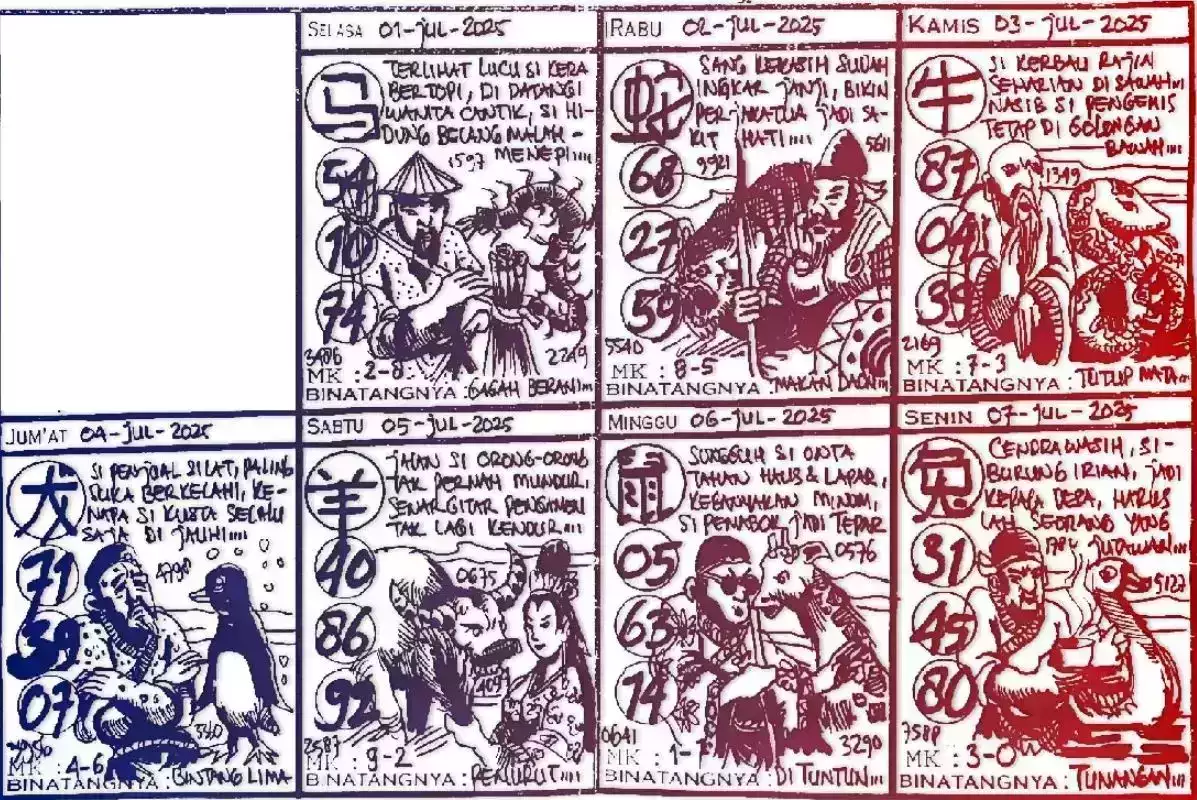 SELASA 01-JUL-2025
马
TERLIHAT LUCU SI KERA
BERTOPI, DI DATANGI
WANITA CANTIK, SI HI-
DUNG BELANG MALAH -
MENEPI....
1597
54
10
74
3486
2249
MK : 2-8
BINATANGNYA : GAGAH BERANI...
RABU 02-JUL-2025
蛇
SANG KEKASIH SUDAH
INGKAR JANJI, BIKIN
PERJAKATUA JADI SA-
KIT HATI....
9921
5611
68
27
59
5540
MK : 8-5
BINATANGNYA : MAKAN DAON...
KAMIS 03-JUL-2025
牛
SI KERBAU RAJIN
SEHARIAN DI SAWAH...
NASIB SI PENGEMIS
TETAP DI GOLONGAN
BAWAH....
1349
87
04
39
5071
2169
MK : 7-3
BINATANGNYA : TUTUP MATA...
JUM'AT 04-JUL-2025
SI PENJUAL SILAT, PALING
SUKA BERKELAHI, KE-
NAPA SI KUSTA SELALU
SAJA DI JAUHI....
4790
71
39
07
MK : 4-6
BINATANGNYA : BINTANG LIMA
SABTU 05-JUL-2025
羊
JALAN SI ORONG-ORONG
TAK PERNAH MUNDUR,
SENAR GITAR PENGAMEN
TAK LAGI KENDUR....
0675
40
86
92
4099
2587
MK : 9-2
BINATANGNYA : PENURUT....
MINGGU 06-JUL-2025
鼠
SUNGGUH SI ONTA
TAHAN HAUS & LAPAR,
KEBANYAKAN MINUM,
SI PENABOK JADI TEPAR
0576
05
63
14
0641
3290
MK : 1-7
BINATANGNYA : DI TUNTUN...
SENIN 07-JUL-2025
兔
CENDRAWASIH, SI-
BURUNG IRIAN, JADI
KEPALA DESA, HARUS
LAH SEORANG YANG
JUTAWAN...
31
45
80
9127
7588
MK : 3-0
BINATANGNYA : TUNANGAN...